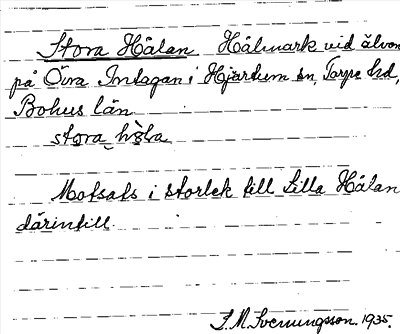 Stora Hålan Hålmark vid älven
på Övra Intagan i Hjärtum sn, Torpe hd,
Bohus län
stora
Motsats i storlek till Lilla Hålan
därintill.
J. M. Svenungsson. 1935.